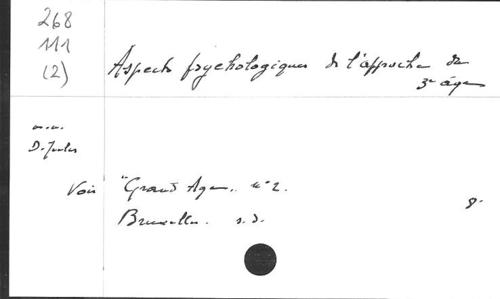 268
111
(2)
Aspects psychologiques de l'approche du
3e âge
Voir "Grand Age". n° 2.
Bruxelles. s.d.
8°